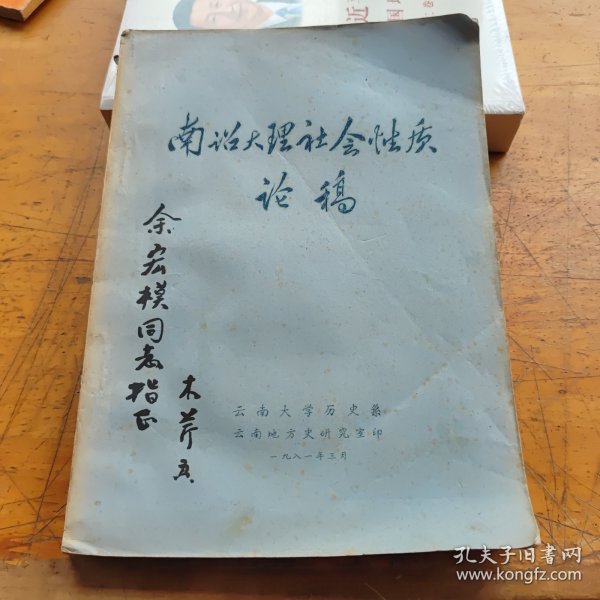 南诏大理社会性质
论稿
余宏模同志指正
木芹
云南大学历史系
云南地方史研究室印
一九八一年三月
孔夫子旧书网
www.kongfz.com